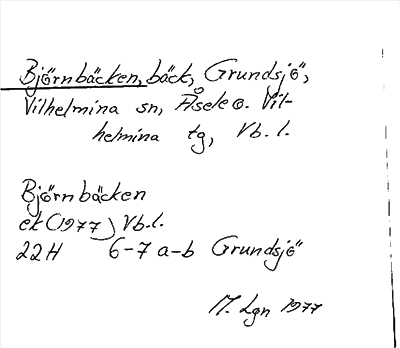 Björnbäcken, bäck, Grundsjö,
Vilhelmina sn, Åsele o. Vil-
helmina tg, Vb. l.
Björnbäcken
ek (1977) Vb.l.
22H 6-7 a-b Grundsjö
M. Lgn 1977